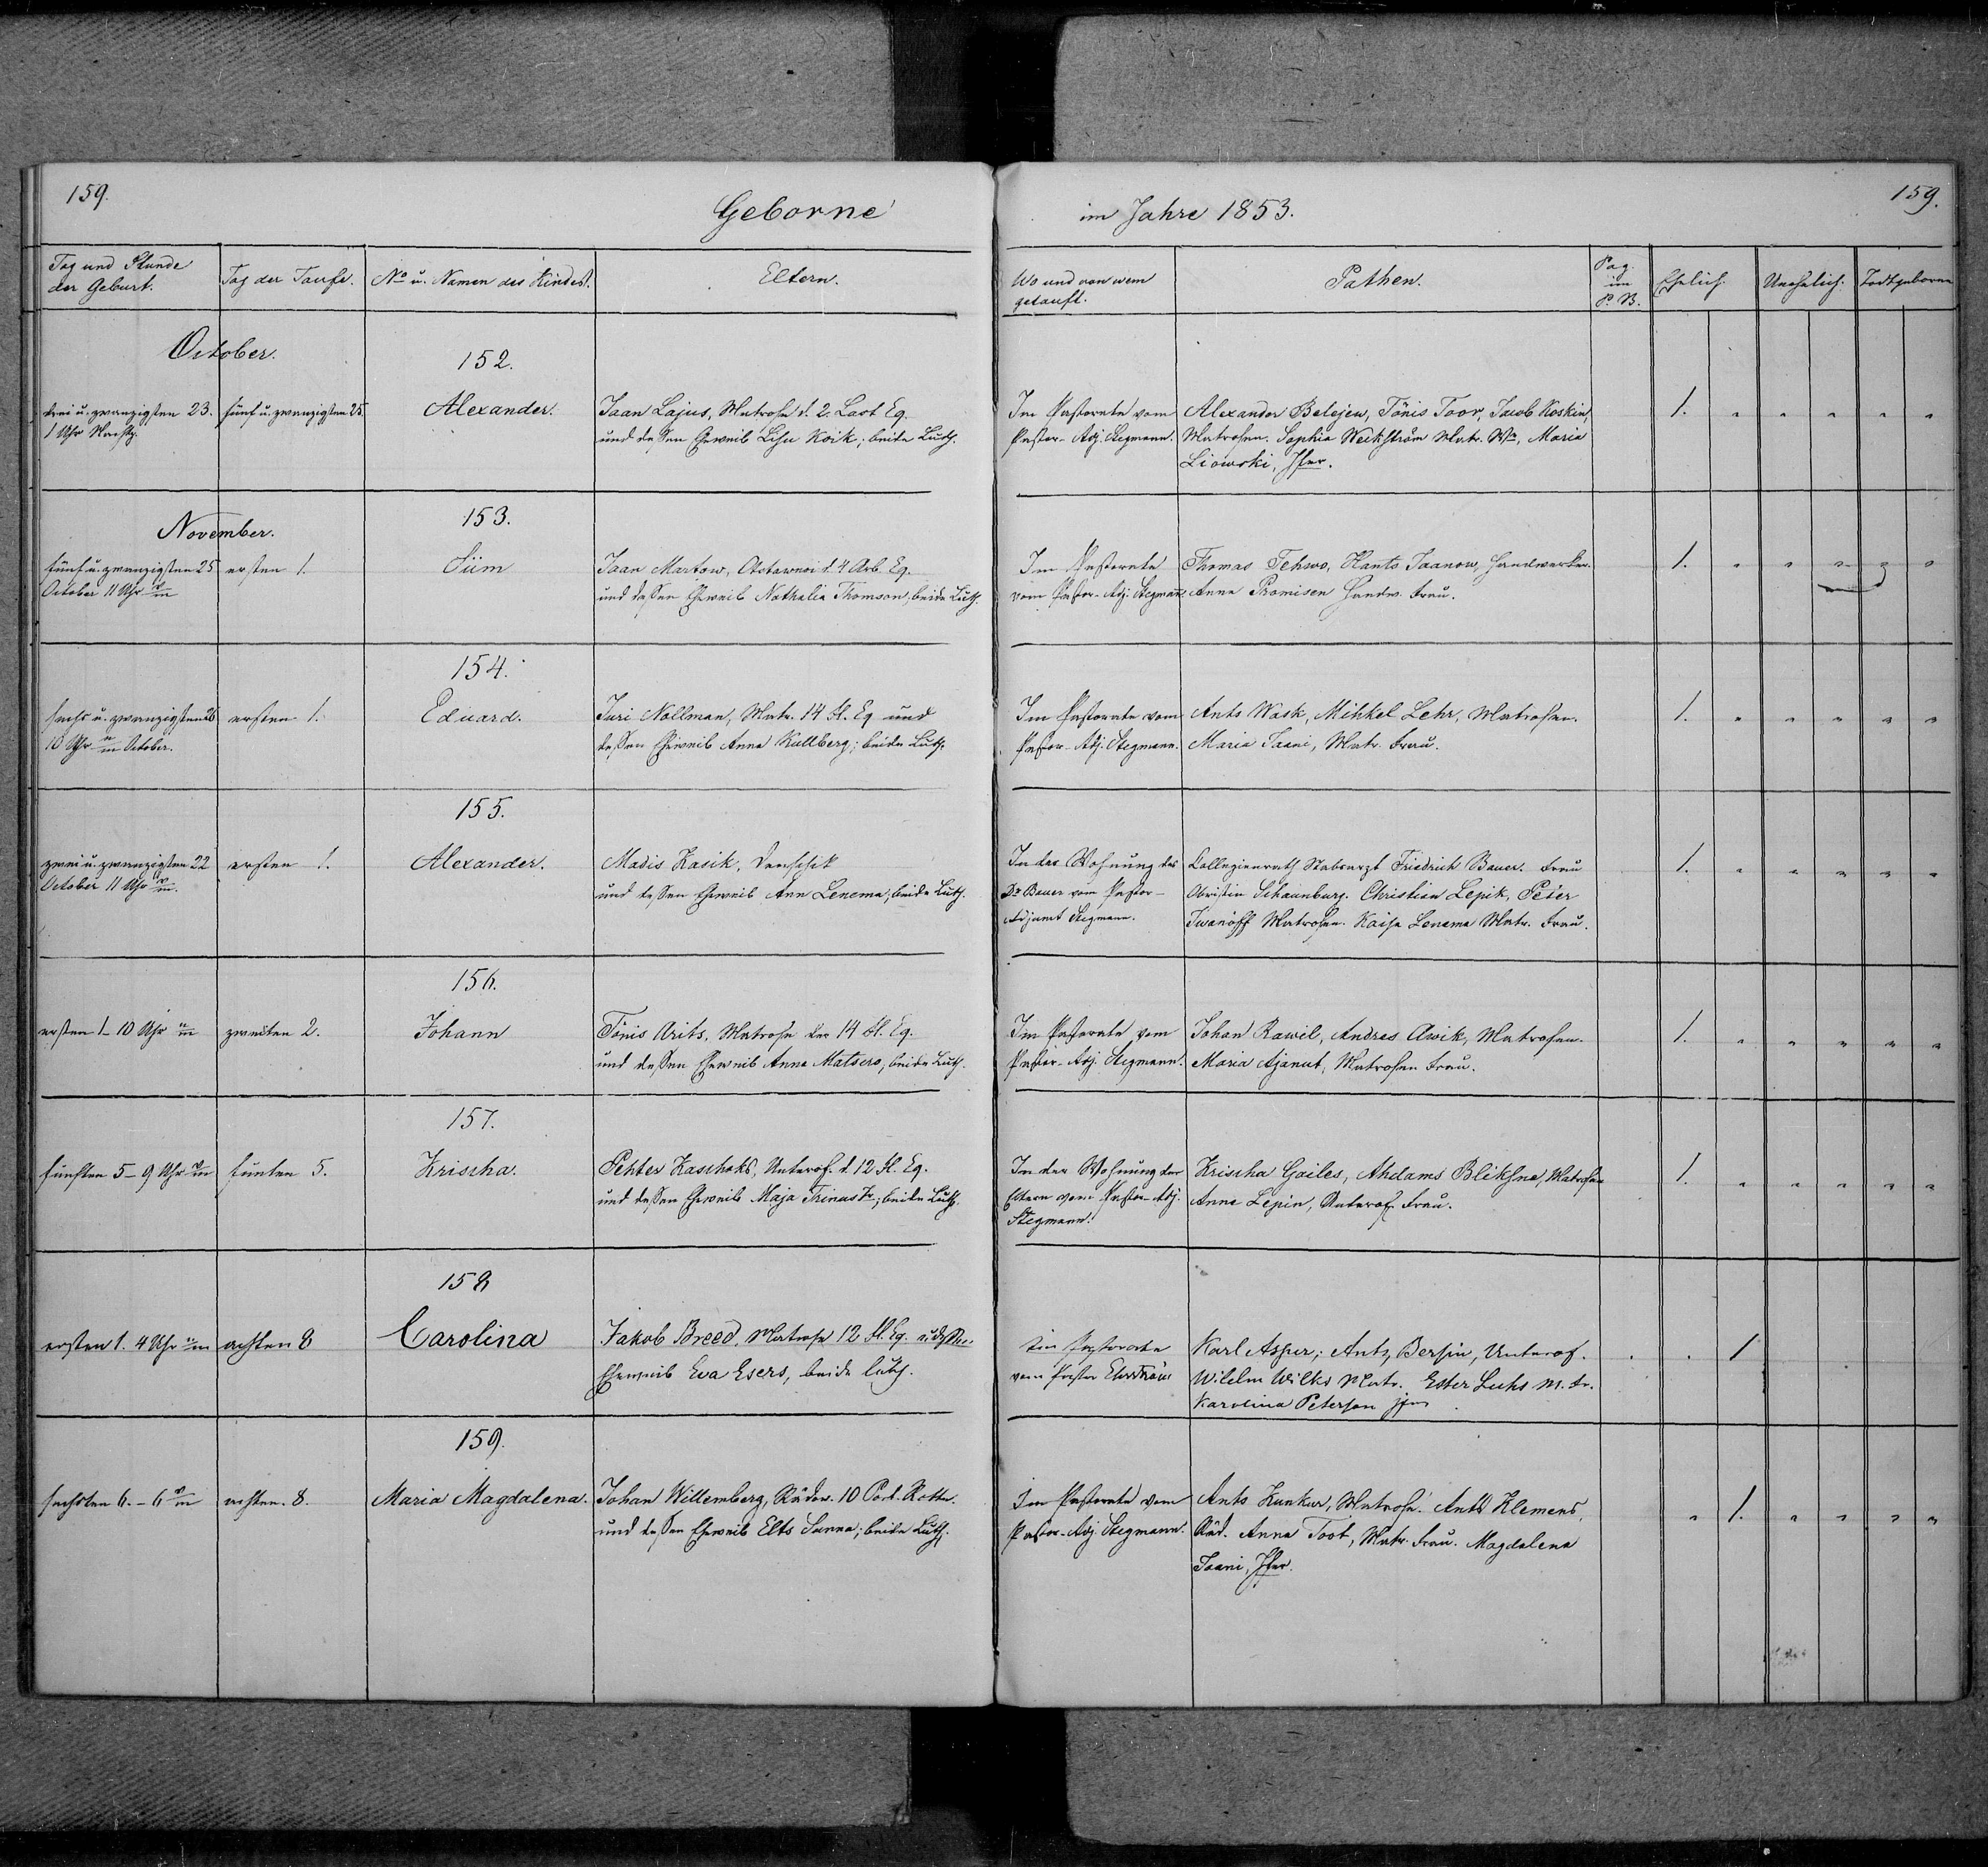 159.
Geborne
im Jahre 1853.
159.
Tag und Stunde
der Geburt.
Tag der Taufe.
No u. Namen des Kindes.
Eltern.
Wo und von wem
getauft.
Pathen.
Pag.
im
P. B.
Ehelich.
Unehelich.
Todtgeborne
October.
152.
drei u. zwanzigsten 23.
1 Uhr Nachts.
fünf u. zwanzigsten 25
Alexander.
Jaan Lajus, Matrose d. 2. Last Eq.
und dessen Eheweib Lisu Koik; beide Luth.
Im Pastorate vom
Pastor-Adj. Stegmann.
Alexander Belejew, Tönis Toor, Jacob Koskin,
Matrosen. Sophia Weckström Matr. We, Maria
Liowski, Jfer.
1. " " " " "
November.
153.
fünf u. zwanzigsten 25
October 11 Uhr
ersten 1.
Siim
Jaan Martow, d. 4 Arb. Eq.
und dessen Eheweib Nathalia Thomson, beide Luth.
Im Pastorate
vom Pastor-Adj. Stegmann
Thomas Tehwo, Hants Jaanow, Handwerker.
Anna Promisen Handw. Frau.
1. " " " " "
154.
sechs u. zwanzigsten 26
10 Uhr October.
ersten 1.
Eduard.
Juri Nollman, Matr. 14 fl. Eq und
dessen Eheweib Anna Kullberg; beide Luth.
Im Pastorate vom
Pastor-Adj. Stegmann.
Ants Wask, Mihkel Lehr, Matrosen.
Maria Jaani, Matr. Frau.
1. " " " " "
155.
zwei u. zwanzigsten 22
October 11 Uhr
ersten 1.
Alexander.
Madis Kasik, Denschik
und dessen Eheweib Ann Lenema, beide Luth.
In der Wohnung des
Dr Bauer vom Pastor-
Adjunct Stegmann.
Collegienrath Stabsarzt Friedrich Bauer. Frau
Christin Schaunburg. Christian Lepik, Peter
Iwanoff Matrosen. Kaisa Lenema Matr. Frau.
1. " " " " "
156.
ersten 1-10 Uhr
zweiten 2.
Johann
Tönis Arits, Matrose der 14 fl. Eq.
und dessen Eheweib Anna Matsero, beide Luth.
Im Pastorate vom
Pastor-Adj. Stegmann.
Johan Rawil, Andres Awik, Matrosen.
Maria Ajanut, Matrosen Frau.
1. " " " " "
157.
fünften 5-9 Uhr
fünten 5.
Krischa.
Pehter Kaschoks, Unterof. d. 12 fl. Eq.
und dessen Eheweib Maja Trinus; beide Luth.
In der Wohnung der
Eltern vom Pastor-Adj.
Stegmann.
Krischa Gailes, Ahdams Bliksne, Matrosen
Anna Lepin, Unterof. Frau.
1. " " " " "
158
ersten 1. 4 Uhr
achten 8
Carolina
Jakob Breed, Matrose 12 fl. Eq. u.
Eheweib Eva Esers, beide luth.
Im Pastorate
vom Pastor Ehrström
Karl Asper, Ants Bersin, Unterof.
Wilelm Wilks Matr. Ester Luhs M. Fr.
Karolina Peterson jfer
. . 1
159.
sechsten 6.-6
achten. 8.
Maria Magdalena.
Johan Willemberg, Ruder. 10 Port. Rotte.
und dessen Eheweib Elts Sanna; beide Luth.
Im Pastorate vom
Pastor-Adj Stegmann.
Ants Kunkur, Matrose. Ants Klemens,
Rud. Anna Toot, Matr. Frau. Magdalena
Jaani, Jfer.
" 1. " " " "